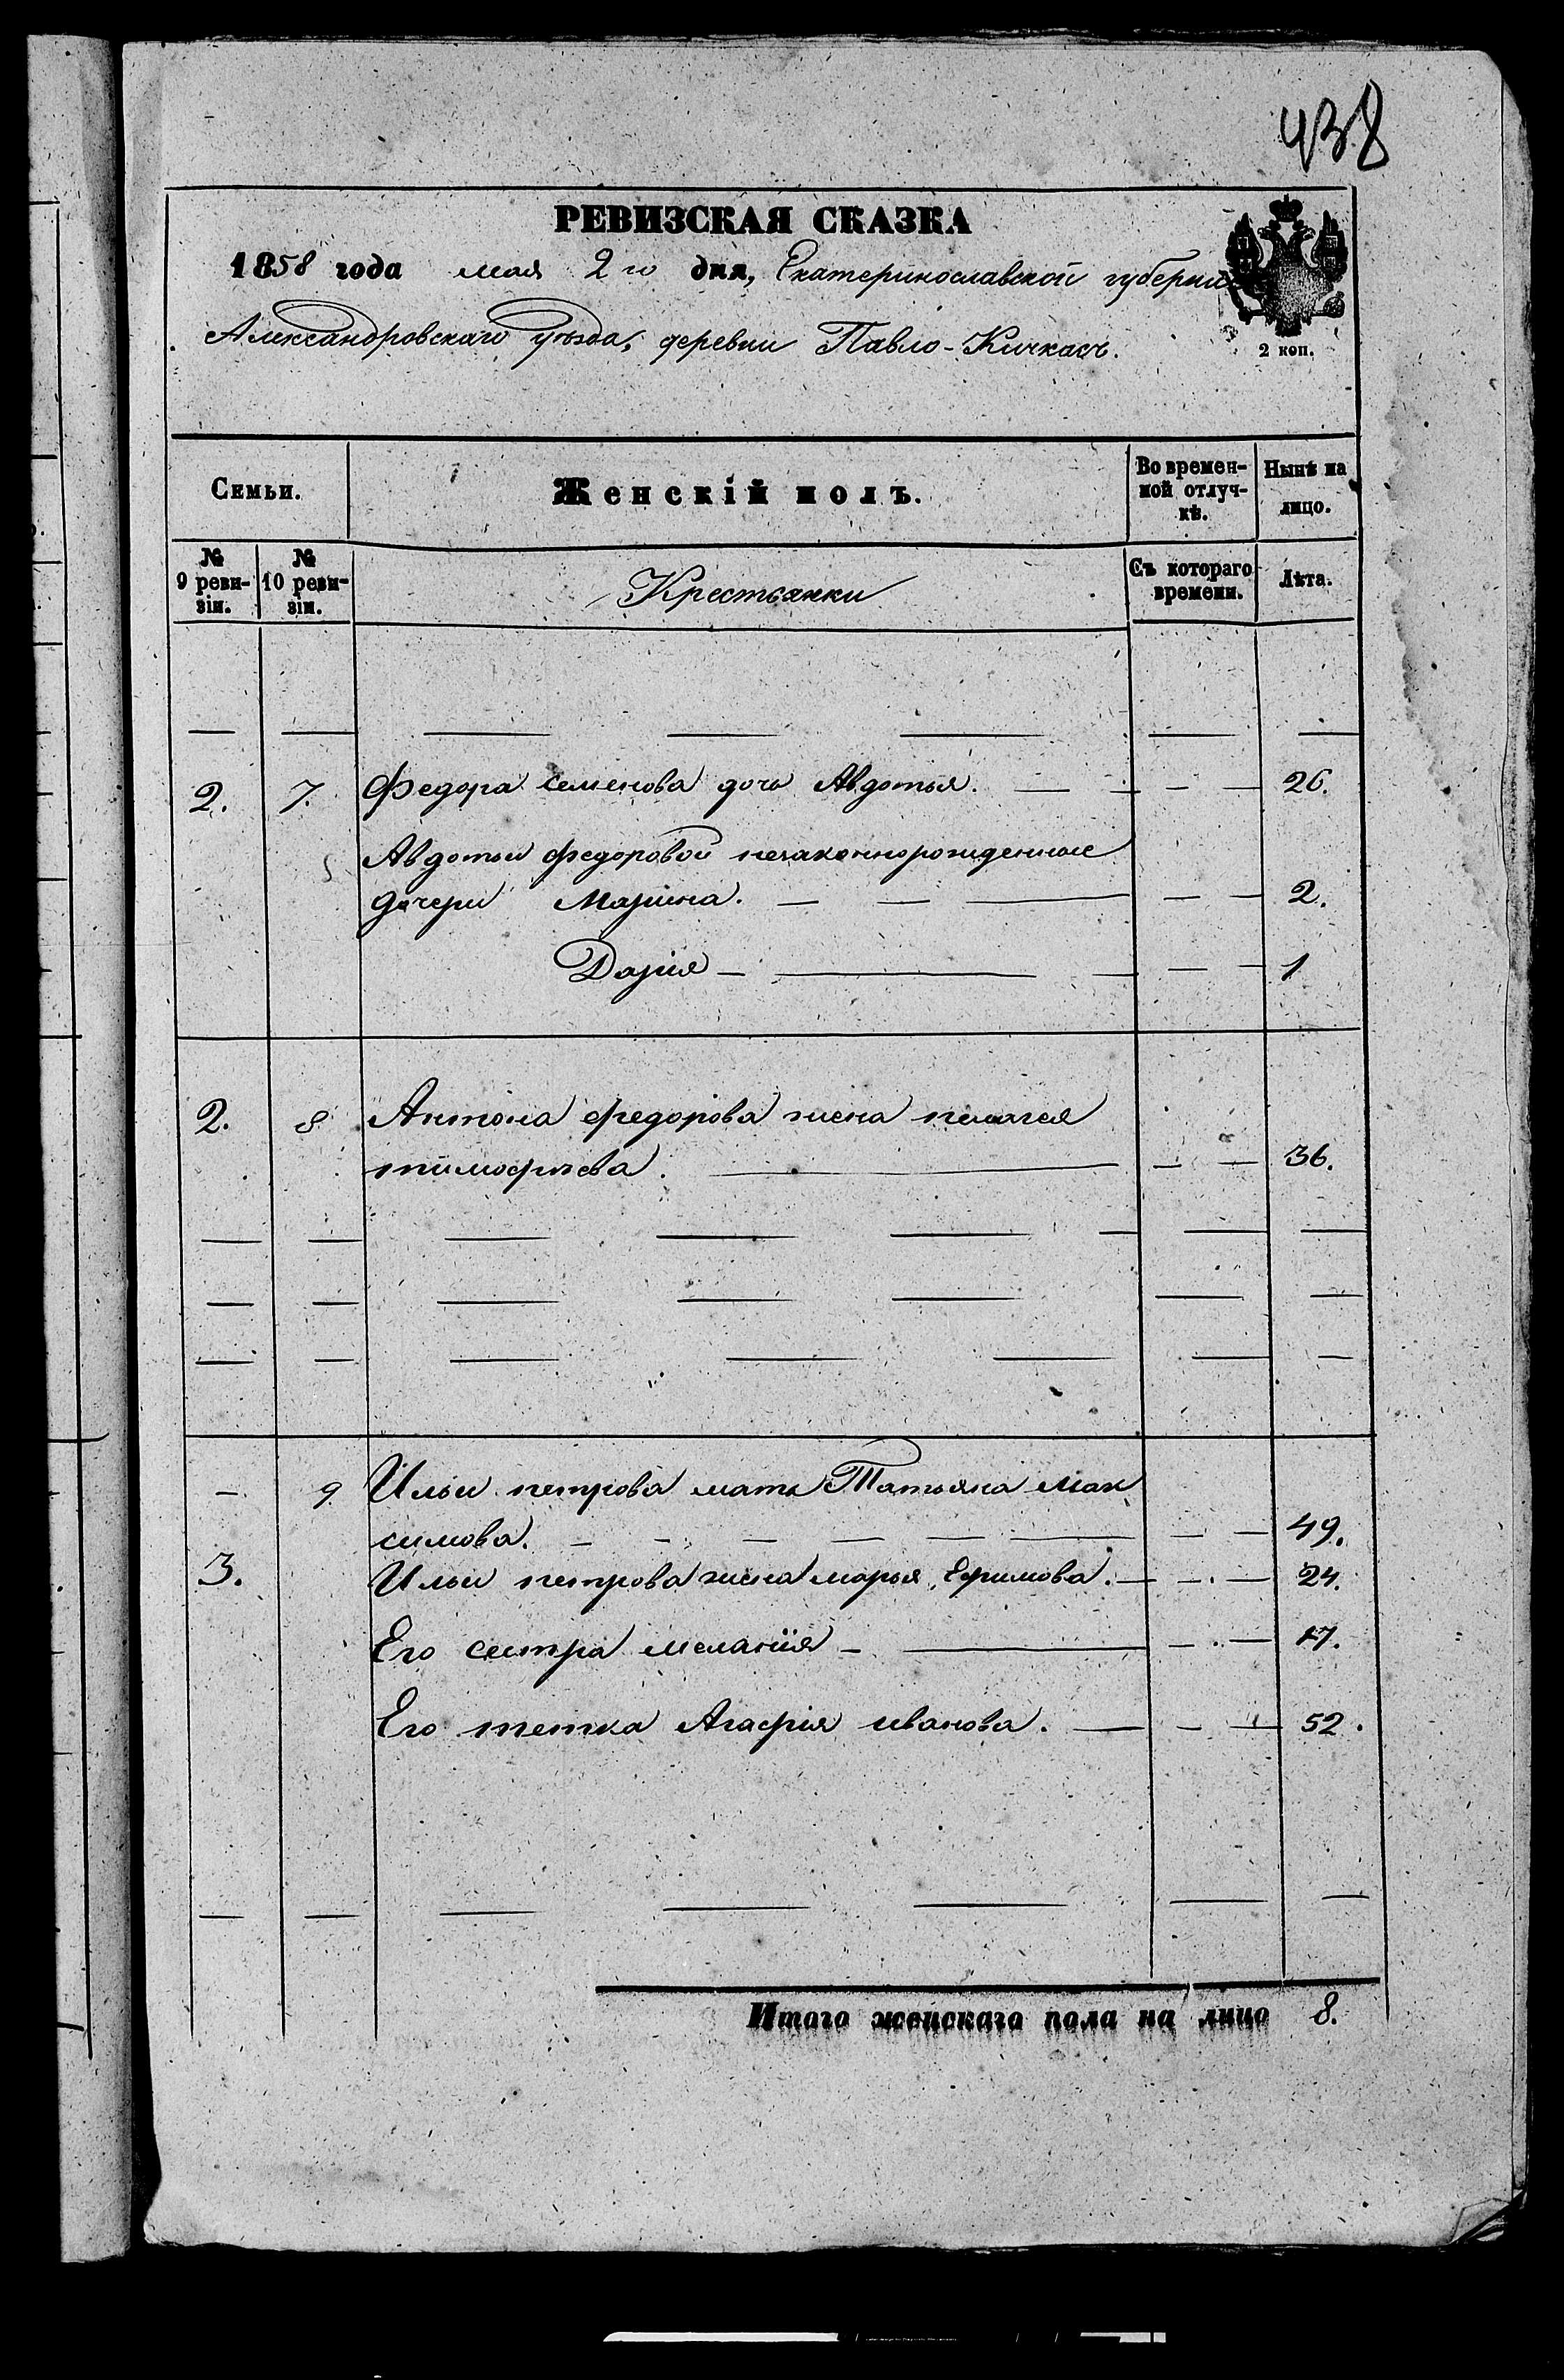 438
РЕВИЗСКАЯ СКАЗКА
1858 года мая 2го дня, Екатеринославской губернии
Александровскаго уѣзда, деревни Павло-Кичкасъ.
2 коп.
Семьи. Женскій полъ. Во времен-ной отлуч-кѣ. Нынѣ на лицо.
№ 9 реви-зіи. № 10 реви-зіи. Крестьянки Съ котораго времени. Лѣта.
2. 7. Федора семенова дочь Авдотья. 26.
Авдотьи федоровой незаконнорожденные
дочери Марина. 2.
Дарія 1
2. 8 Антона федорова жена пелагея
тимофѣева. 36.
9. Ильи петрова мать Татьяна Мак
симова. 49.
3. Ильи петрова жена марья Ефимова. 24.
Его сестра меланія 17.
Его тетка Агафія иванова. 52.
Итого женскаго пола на лицо 8.